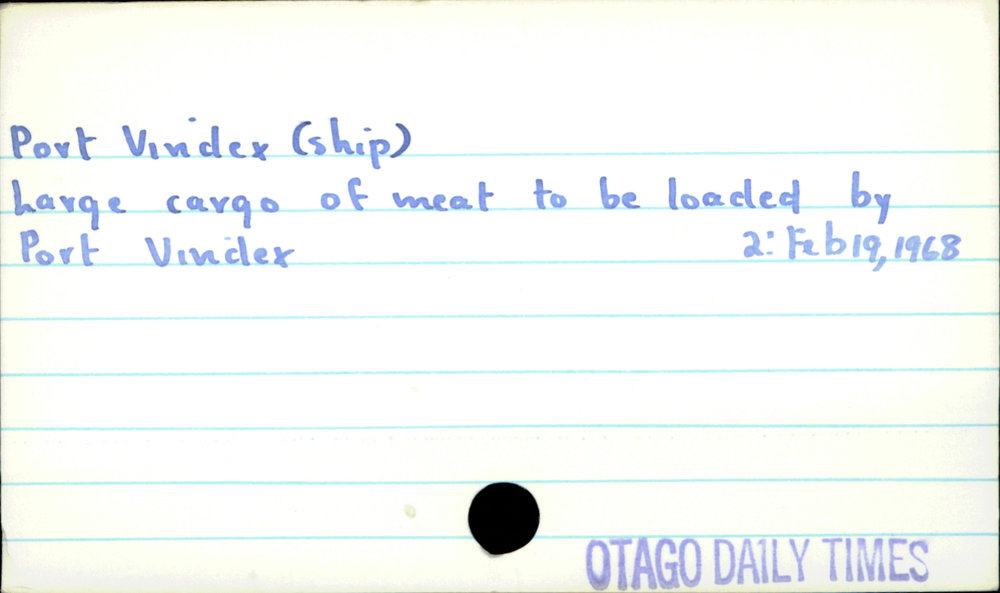 Port Vindex (ship)
Large cargo of meat to be loaded by
Port Vindex 2: Feb 19, 1968
OTAGO DAILY TIMES